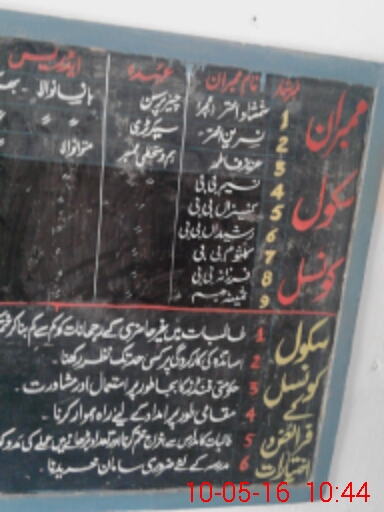 ممبران سکول کونسل
نمبر شمار نام ممبران عہدہ ایڈریس
1 شمشاد اختر چیئرپرسن
2 نسرین اختر سیکرٹری
3 عذیذ فاطمہ
4 نسیم بی بی
5 کنیزاں بی بی
6 رشیداں بی بی
7 کلثوم بی بی
8 فرزانہ بی بی
9
سکول کونسل کے فرائض و اختیارات
1 طالبات میں غیر حاضری کے رجحانات کو کم سے کم بنا کر
2 اساتذہ کی کارکردگی پر کسی حد تک نظر رکھنا۔
3 حکومتی فنڈز کا بجا طور پر استعمال اور مشاورت۔
4 مقامی طور پر امداد کے لیے راہ ہموار کرنا۔
5 طالبات کا مدارس سے خراج ختم کرنا اور تعداد بڑھانے میں عملے کی مدد کرنا
6 مدرسہ کے لئے ضروری سامان خریدنا۔
10-05-16 10:44